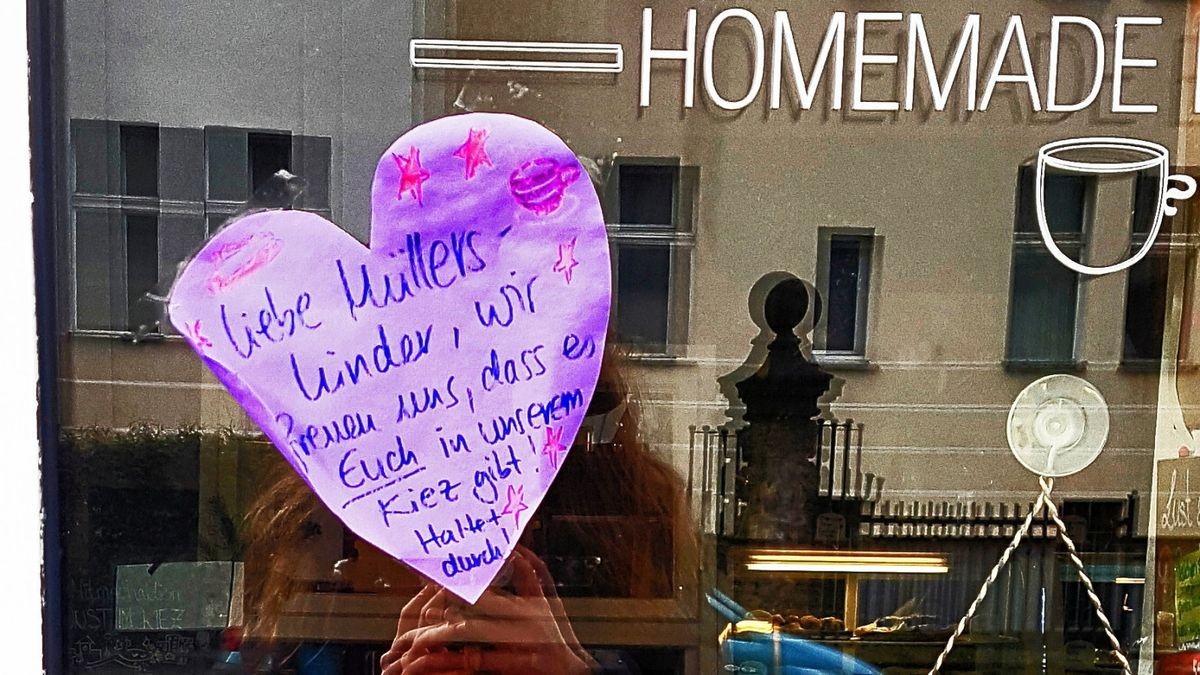 HOMEMADE
Liebe Müllers-
kinder, wir
freuen uns, dass es
Euch in unserem
Kiez gibt!
Haltet
durch!
Lust